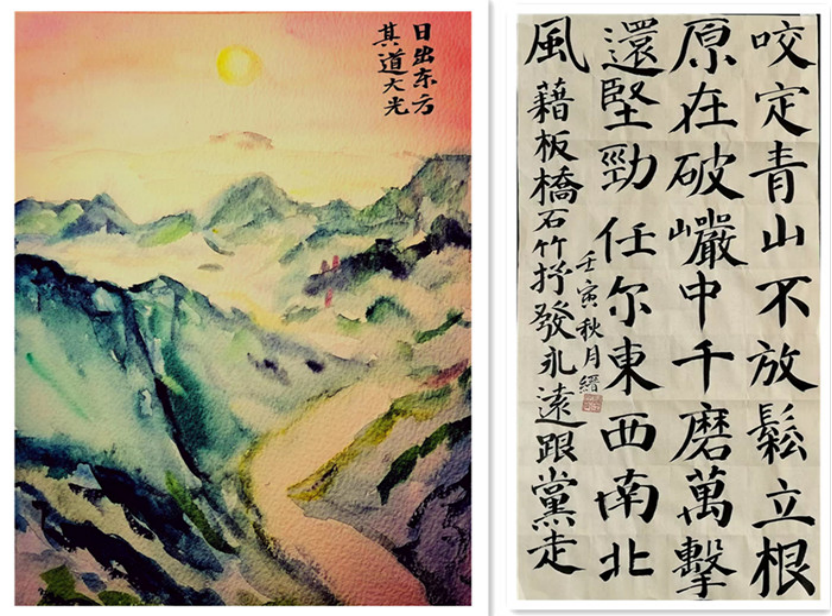 日出东方
其道大光
咬定青山不放鬆立根
原在破巖中千磨萬擊
還堅勁任尔東西南北
風藉板橋石竹抒發永遠跟黨走
壬寅秋月縉